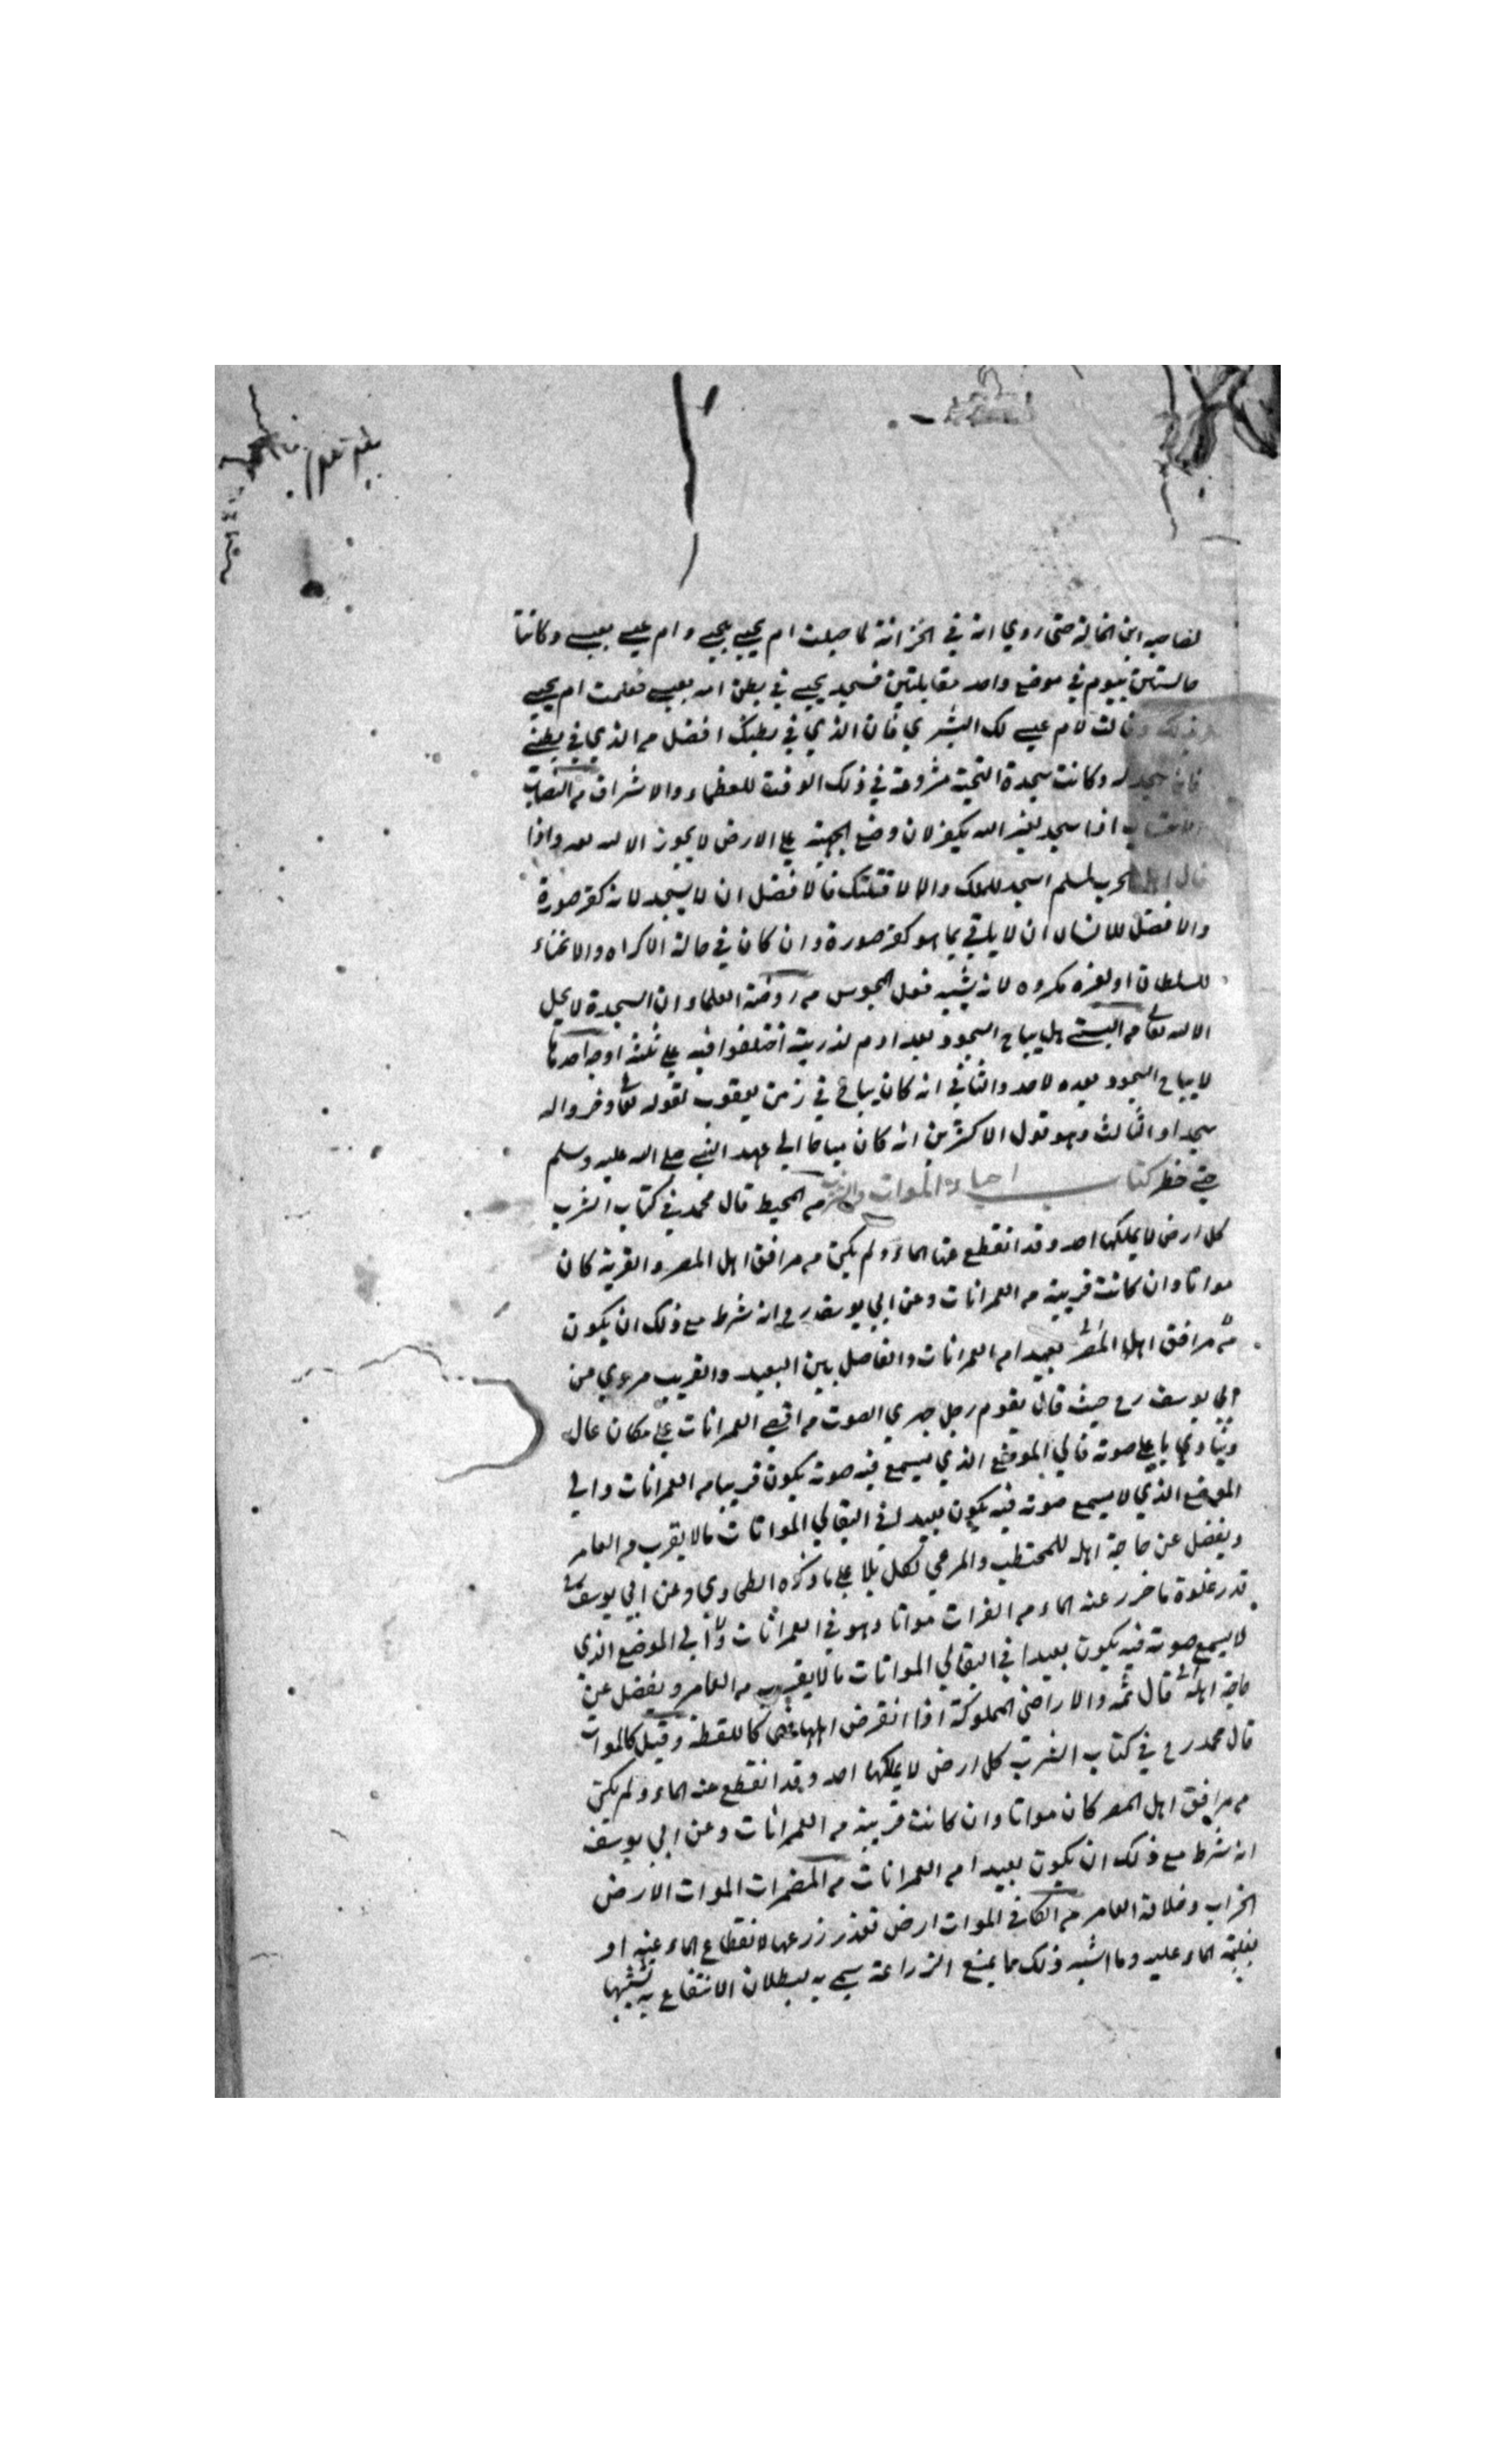 لصاحبه ابن الخالة حتى روي انه في الخزانة لما حبلت ام يحيى بيحيى و ام عيسى بعيسى وكانتا
جالستين بيوم في موضع واحد مقابلتين فسجد يحيى في بطن امه بعيسى فعلمت ام يحيى
وقالت لام عيسى لك البشري فان الذي في بطنك افضل من الذي في بطني
فانه سجد له وكانت سجدة التحية مشروعة في ذلك الوقت للعظماء والاشراف من النصاب
الاحتساب اذا سجد لغير الله يكفر لان وضع الجبهة على الارض لا يجوز الا لله تعه واذا
قال اهل الحرب لمسلم اسجد للملك والا لا قتلتك فالافضل ان لا يسجد لانه كفر صورة
والافضل للانسان ان لا يلاقي بما هو كفر صورة وان كان في حالة الاكراه والانحناء
للسلطان او لغيره مكروه لانه يشبه فعل المجوس من روضة العلماء ان السجدة لا يحل
الا لله تعالى من البستي هل يباح السجود بعد ادم لذريته اختلفوا فيه على ثلثة اوجه احدها
لا يباح السجود بعده لاحد والثاني انه كان يباح في زمن يعقوب لقوله تعالى وخروا له
سجدا والثالث وهو قول الاكثرين انه كان مباحا الى عهد النبي صلى الله عليه وسلم
حتى حظر كتاب احياء الموات والشرب من المحيط قال محمد في كتاب الشرب
كل ارض لا يملكها احد وقد انقطع عنها الماء ولم يكن من مرافق اهل المصر والقرية كان
مواتا وان كانت قريبة من العمرانات وعن ابي يوسف رح انه شرط مع ذلك ان يكون
من مرافق اهل المصر بعيدا من العمرانات والفاصل بين البعيد والقريب مروي عن
ابي يوسف رح حيث قال يقوم رجل جهري الصوت من اقصى العمرانات على مكان عال
وينادي باعلى صوته فالي الموضع الذي يسمع فيه صوته يكون قريبا من العمرانات والى
الموضع الذي لا يسمع صوته فيه يكون بعيدا في البقالي المواتات ما لا يقرب من العامر
ويفضل عن حاجة اهله للمحتطب والمرعي لكل بلا على ما ذكره الطحاوي وعن ابي يوسف
قدر غلوة ما خرر عنه الماء من الفرات مواتا وهو في العمرانات والى الموضع الذي
لا يسمع صوته فيه يكون بعيدا في البقالي المواتات ما لا يقرب من العامر ويفضل عن
حاجة اهله قال ثمه والاراضي المملوكة اذا انقرض اهلها فهي كاللقطة وقيل كالموات
قال محمد رح في كتاب الشرب كل ارض لا يملكها احد وقد انقطع عنه الماء ولم يكن
من مرافق اهل المصر كان مواتا وان كانت قريبة من العمرانات وعن ابي يوسف
انه شرط مع ذلك ان يكون بعيدا من العمرانات من المضمرات الموات الارض
الخراب وخلافه العامر من الكافي الموات ارض تعذر زرعها لانقطاع الماء عنه او
لغلبة الماء عليه وما اشبه ذلك مما يمنع الزراعة سمي به لبطلان الانتفاع به تشبيها